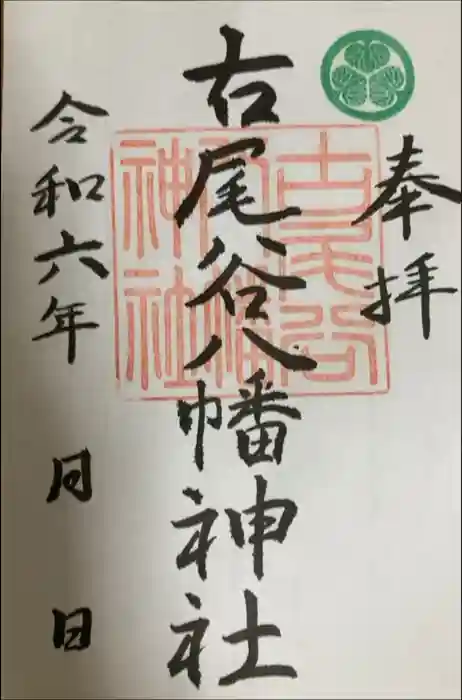 奉拝
古尾谷八幡神社
古尾谷
八幡
神社
令和六年 月 日